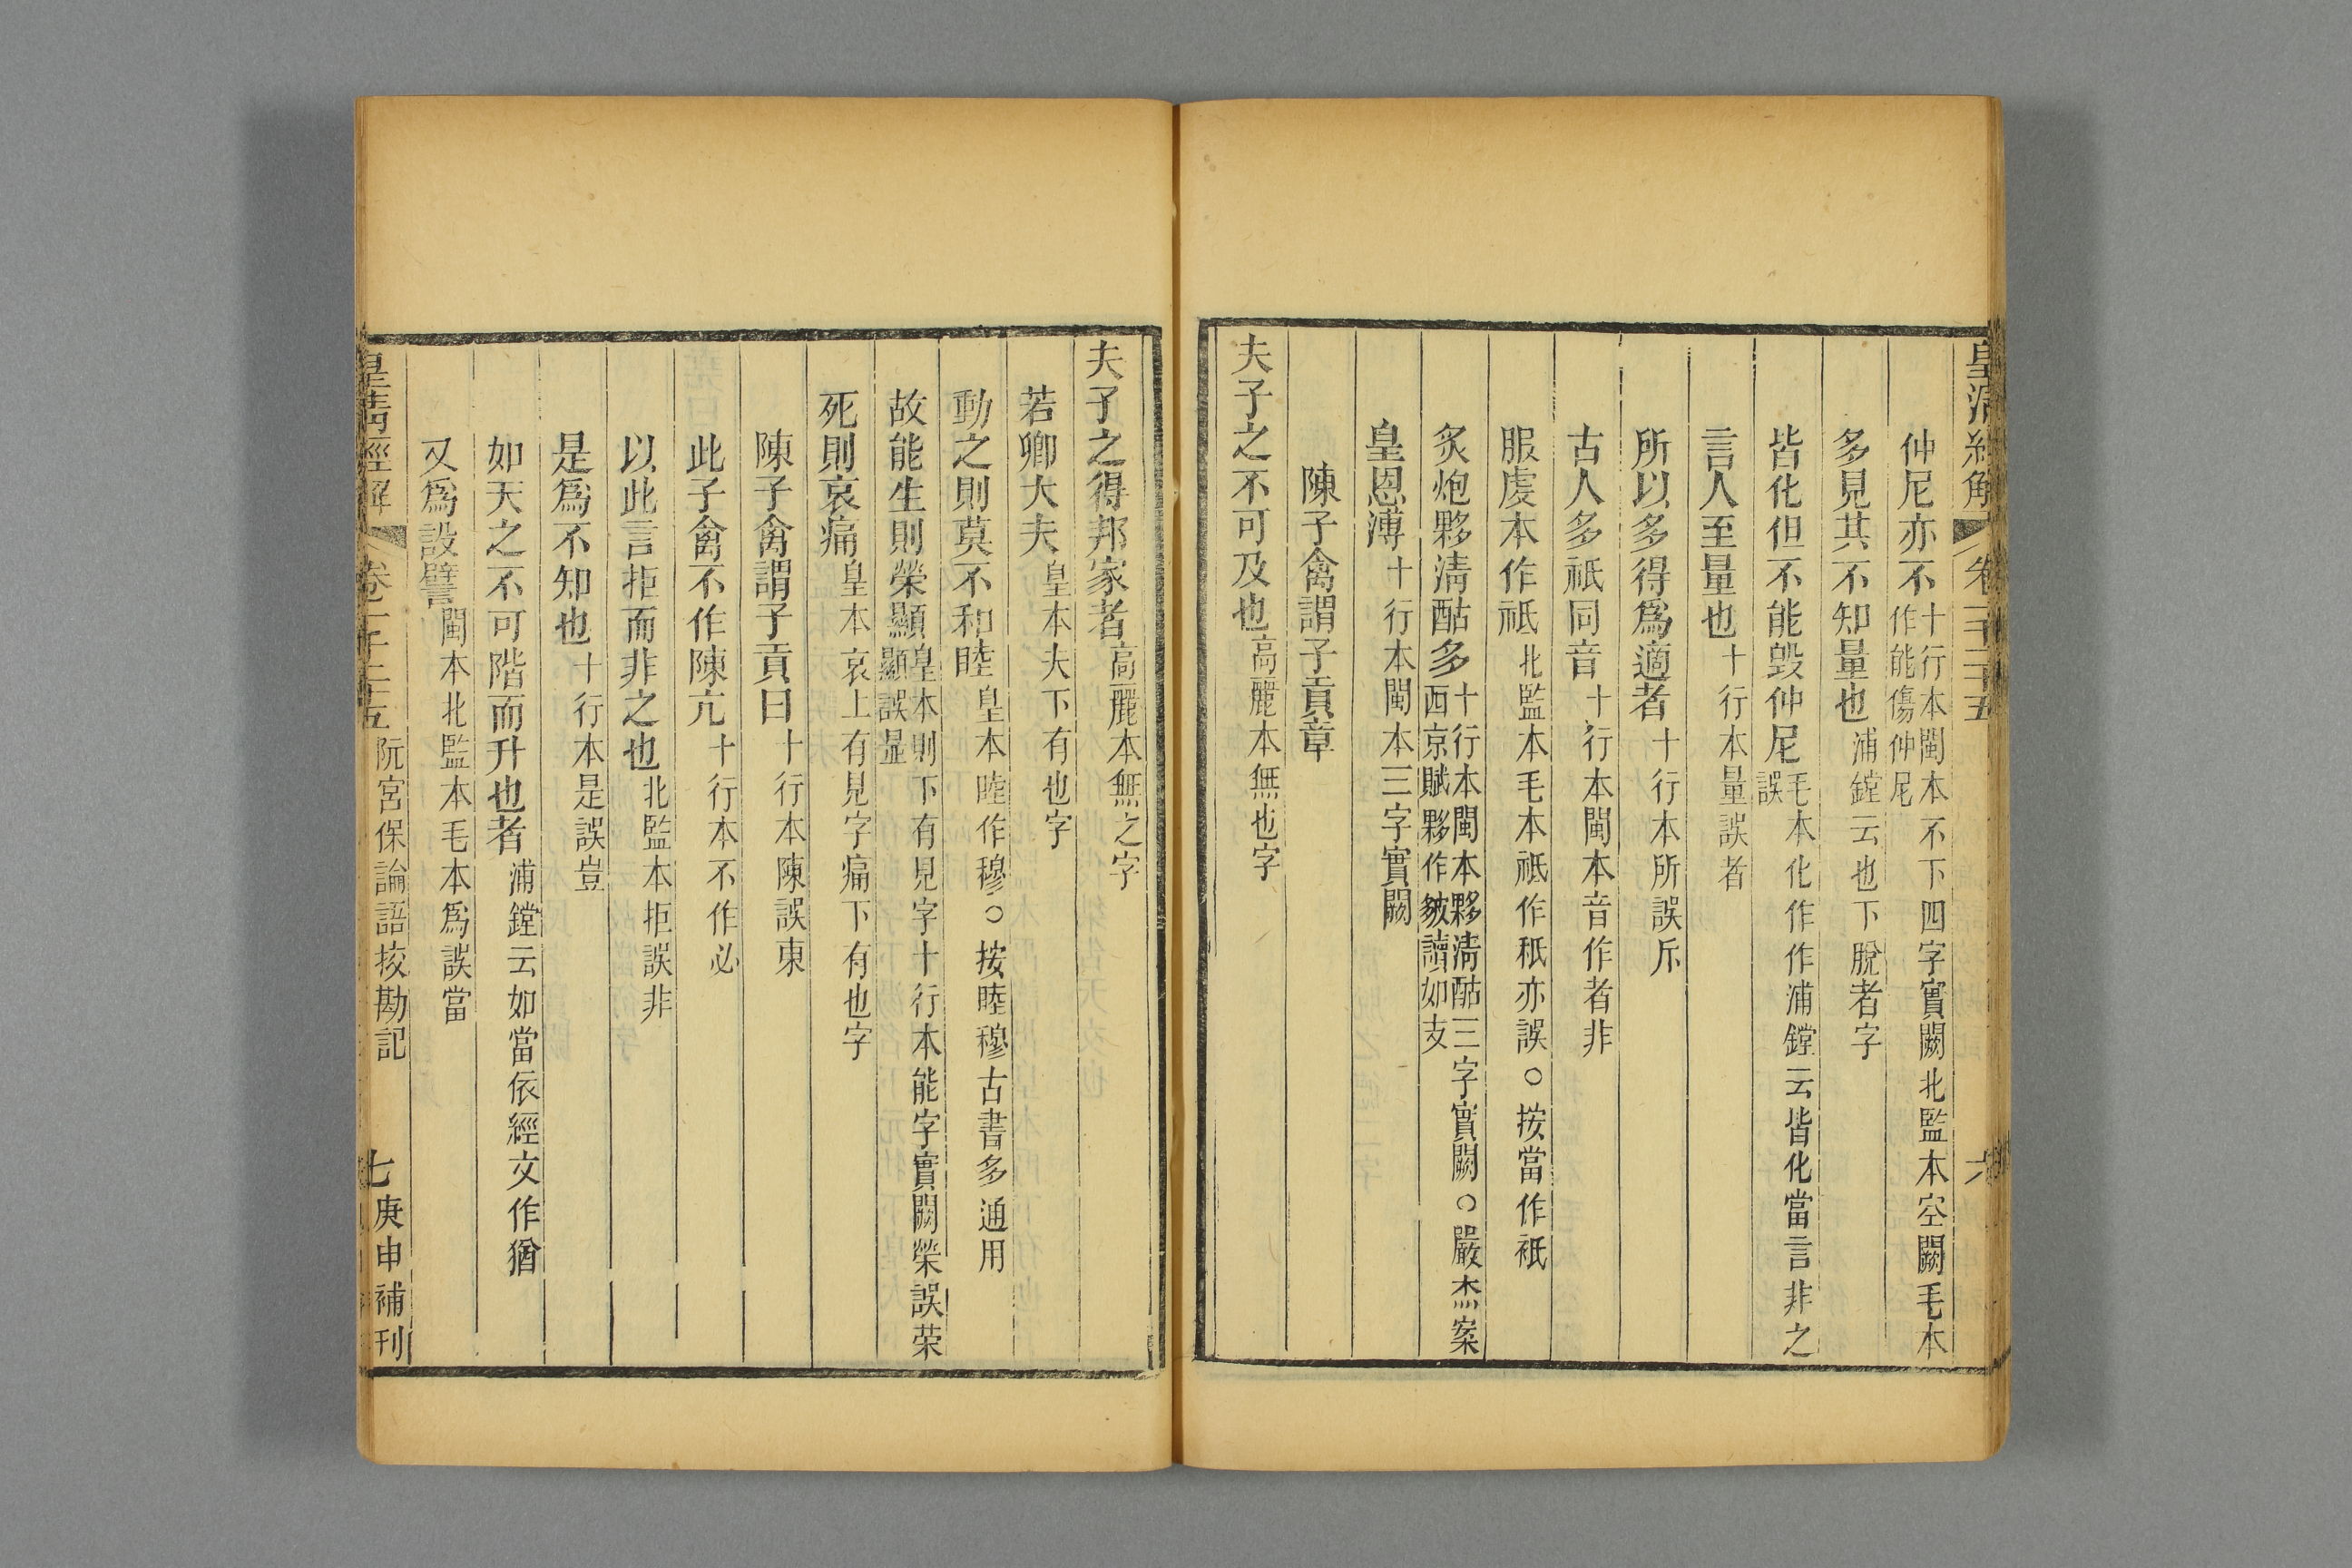 皇清經解 卷一千二十五 六
仲尼亦不十行本閩本不下四字實闕北監本空闕毛本作能傷仲尼
多見其不知量也浦鏜云也下脫者字
皆化但不能毀仲尼毛本化作作浦鏜云皆化當言非之誤
言人至量也十行本量誤者
所以多得爲適者十行本所誤斥
古人多祇同音十行本閩本音作者非
服虔本作祇北監本毛本祇作秖亦誤○按當作衹
炙炮夥淸酤多十行本閩本夥淸酤三字實闕○嚴杰案西京賦夥作䝬讀如支
皇恩溥十行本閩本三字實闕
陳子禽謂子貢章
夫子之不可及也高麗本無也字
夫子之得邦家者高麗本無之字
若卿大夫皇本夫下有也字
動之則莫不和睦皇本睦作穆○按睦穆古書多通用
故能生則榮顯皇本則下有見字十行本能字實闕榮誤荣顯誤显
死則哀痛皇本哀上有見字痛下有也字
陳子禽謂子貢曰十行本陳誤東
此子禽不作陳亢十行本不作必
以此言拒而非之也北監本拒誤非
是爲不知也十行本是誤豈
如天之不可階而升也者浦鏜云如當依經文作猶
又爲設譬閩本北監本毛本爲誤當
皇清經解 卷一千二十五 阮宮保論語挍勘記 七 庚申補刊